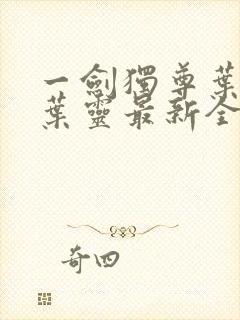 一劍獨尊葉
葉靈最新全
奇四